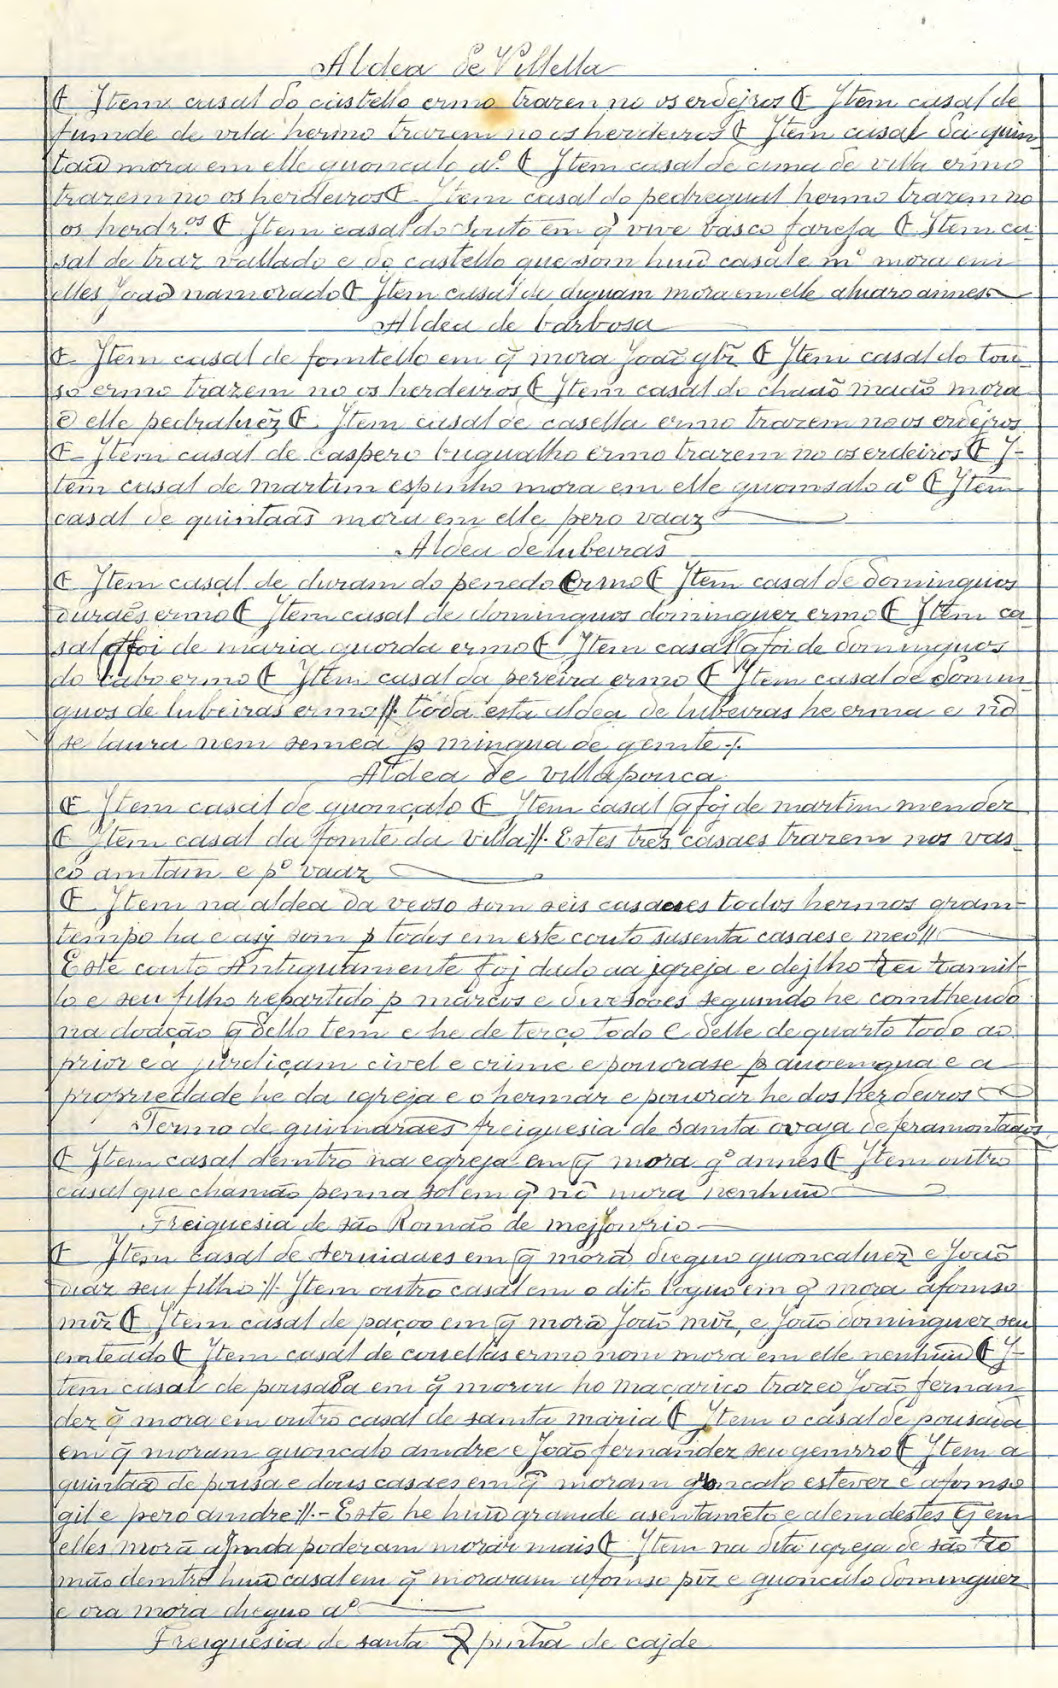 Aldea de Villella
₢ Jtem casal do castello ermo trazen no os erdejros ₢ Jtem casal de
fumde de vila hermo trazem no os herdeiros ₢ Jtem casal da quin-
taã mora em elle guoncalo aº. ₢ Jtem casal de cima de villa ermo
trazem no os herdeiros ₢ Jtem casal do pedregual hermo trazem no
os herdr.ºˢ ₢ Jtem casal do Souto em q̃ vive vasco fareja ₢ Jtem ca-
sal de traz vallado e do castello que som huũ casal e mº mora em
elles Joaõ namorado ₢ Jtem casal de diguam mora em elle alvaro annes
Aldea de barbosa
₢ Jtem casal de fomtello em q̃ mora Joaõ glz̃ ₢ Jtem casal do tou-
so ermo trazem no os herdeiros ₢ Jtem casal do chaaõ maaõ mora
ẽ elle pedraluez̃ ₢ Jtem casal de casella ermo trazem no os erdejros
₢ Jtem casal de caspero bugualho ermo trazem no os erdeiros ₢ J-
tem casal de martim espinho mora em elle guomsalo aº ₢ Jtem
casal de quintaãs mora em elle pero vaaz
Aldea de lubeiras
₢ Jtem casal de duram do penedo ermo ₢ Jtem casal de dominguos
duraẽs ermo ₢ Jtem casal de dominguos dominguez ermo ₢ Jtem ca-
sal q̃ foi de maria guorda ermo ₢ Jtem casal q̃ foi de dominguos
do cabo ermo ₢ Jtem casal da pereira ermo ₢ Jtem casal de domin-
guos de lubeiras ermo //. toda esta aldea de lubeiras he erma e nõ
se laura nem semea p mingua de gemte ./.
Aldea de villapouca
₢ Jtem casal de guonçalo ₢ Jtem casal q̃ foj de martim mendez
₢ Jtem casal da fomte da villa //. Estes tres casaes trazem nos vas-
co amtam e pº vaaz
₢ Jtem na aldea da veoso som seis casaes todos hermos gram
tempo ha e asj som p todos em este couto sasenta casaes e meo //
Este couto Antiguamente foj dado aa jgreja e dejlho Rei Ramil-
lo e seu filho repartido p marcos e divisoões segumdo he comtheudo
na doação q̃ dello tem e he de terço todo e delle de quarto todo ao
prior e a jurdiçam civel e crime e pouorase p auemgua e a
propriedade he da igreja e o hermar e pouorar he dos herdeiros
Termo de guimaraẽs freiguesia de samta ovaja de feramontaãos
₢ Jtem casal demtro na egreja em q̃ mora gº annes ₢ Jtem outro
casal que chamão penna sol em q̃ nõ mora nenhuũ
Freiguesia de são Romão de mejjomfrio
₢ Jtem casal de seruiaaes em q̃ morã dieguo guoncaluez e Joaõ
diaz seu filho //. Jtem outro casal em o dito loguo em q̃ mora afomso
miz̃ ₢ Jtem casal de paçoo em q̃ morã Joaõ miz̃, e João dominguez seu
emteado ₢ Jtem casal de couellas ermo nom mora em elle nenhuũ ₢ J-
tem casal de pousada em q̃ morou ho maçarico trazeo Joaõ fernan-
dez q̃ mora em outro casal de samta maria ₢ Jtem o casal de pousada
em q̃ moram guoncalo amdre e Joaõ fernandez seu gemrro ₢ Jtem a
quintaã de pousa e dous casaes em q̃ moram guoncalo estevez e afomso
gil e pero amdre //.- Este he huũ gramde asentameto e alem destes q̃ em
elles morã aJmda poderam morar mais ₢ Jtem na dita igreja de são Ro-
mão demtro huũ casal em q̃ moraram afomso piz̃ e guoncalo dominguez
e ora mora dieguo aº
Freiguesia de santa x pinha de cajde